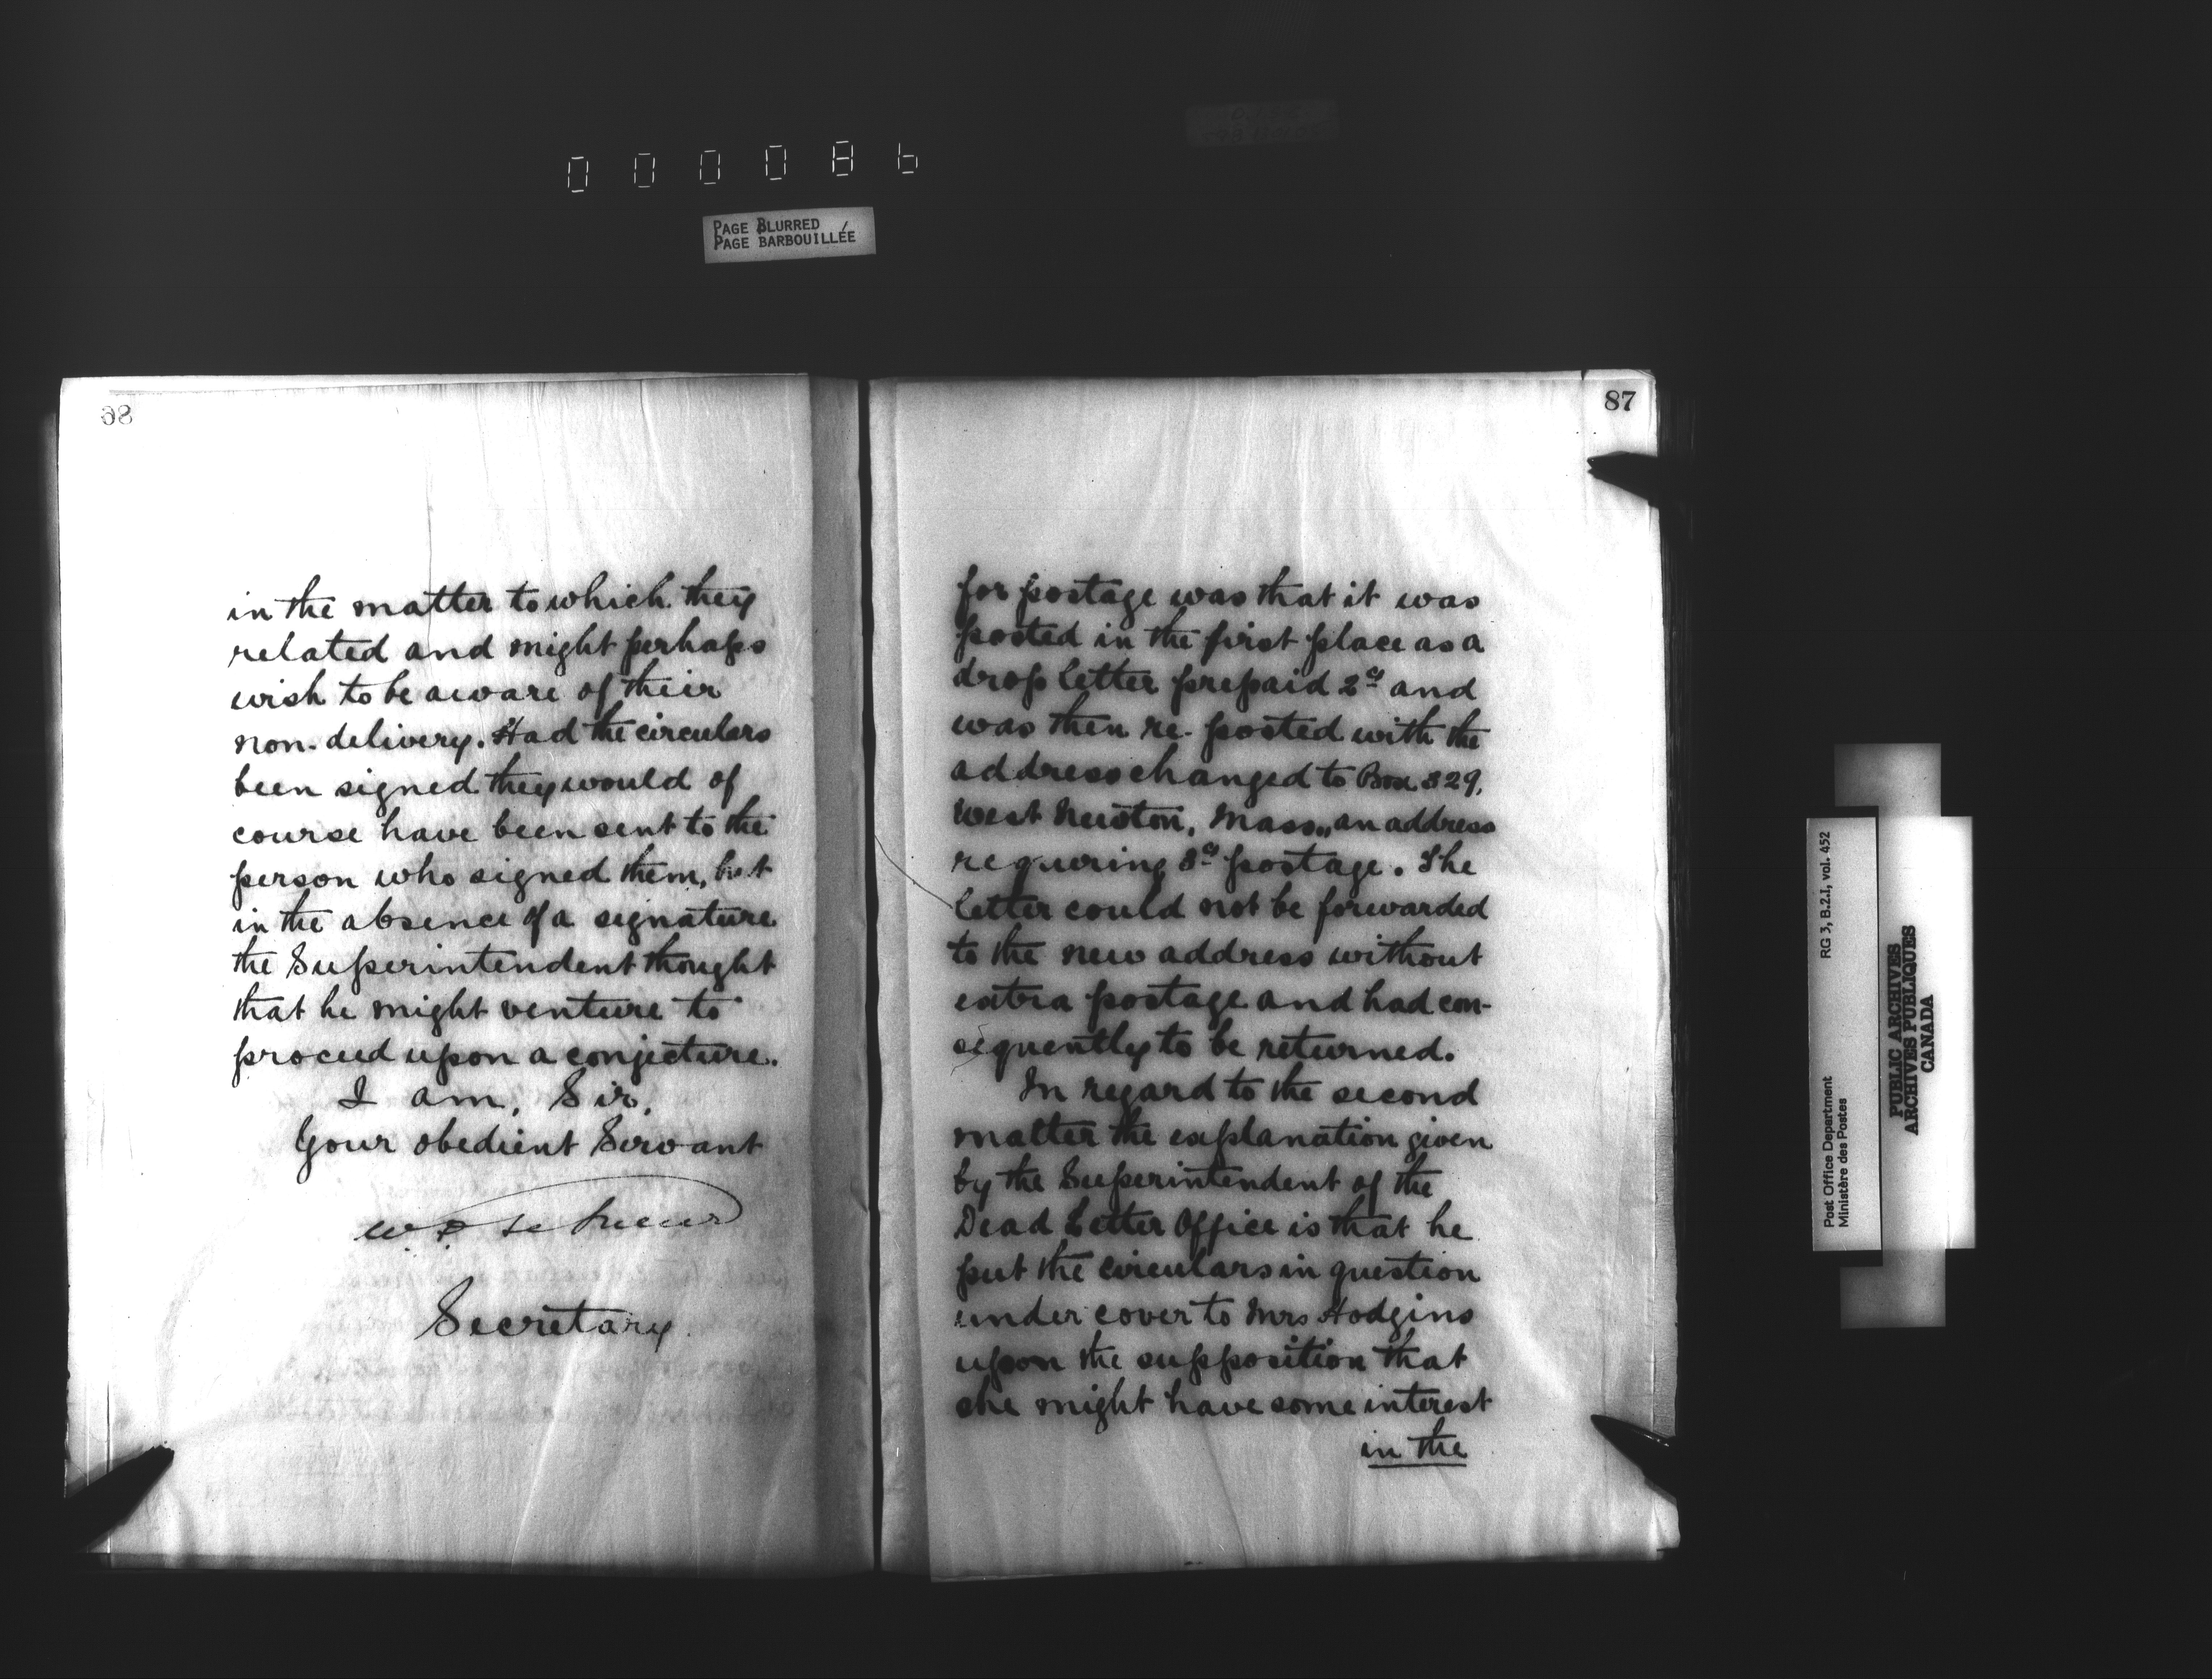 0 0 0 0 8 6
PAGE BLURRED
PAGE BARBOUILLÉE
86
in the matter to which they
related and might perhaps
wish to be aware of their
non-delivery. Had the circulars
been signed they would of
course have been sent to the
person who signed them, but
in the absence of a signature
the Superintendent thought
that he might venture to
proceed upon a conjecture.
I am, Sir,
Your obedient Servant
W. D. Le Sueur
Secretary.
87
for postage was that it was
posted in the first place as a
drop letter prepaid 2cs and
was then re-posted with the
address changed to Box 329,
West Newton, Mass., an address
requiring 3cs postage. The
letter could not be forwarded
to the new address without
extra postage and had con-
sequently to be returned.
In regard to the second
matter the explanation given
by the Superintendent of the
Dead Letter Office is that he
put the circulars in question
under cover to Mrs Hodgins
upon the supposition that
she might have some interest
in the
Post Office Department
Ministère des Postes
RG 3, B.2.I, vol. 452
PUBLIC ARCHIVES
ARCHIVES PUBLIQUES
CANADA